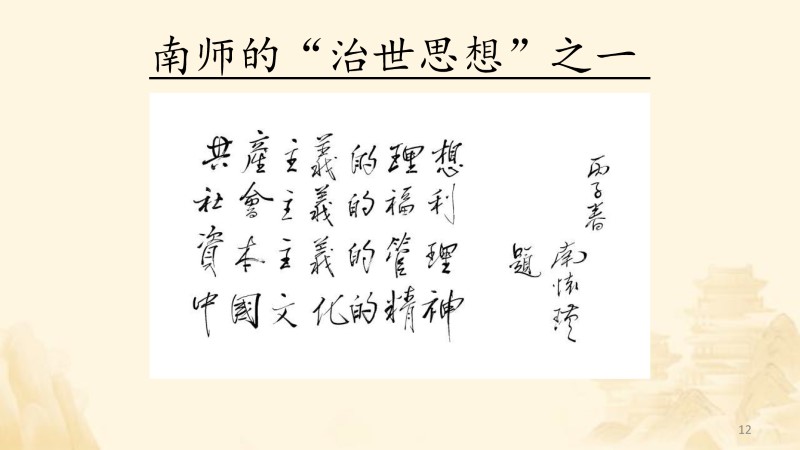 南师的“治世思想”之一
共產主義的理想
社會主義的福利
資本主義的管理
中國文化的精神
丙子春
南懷瑾
題
12